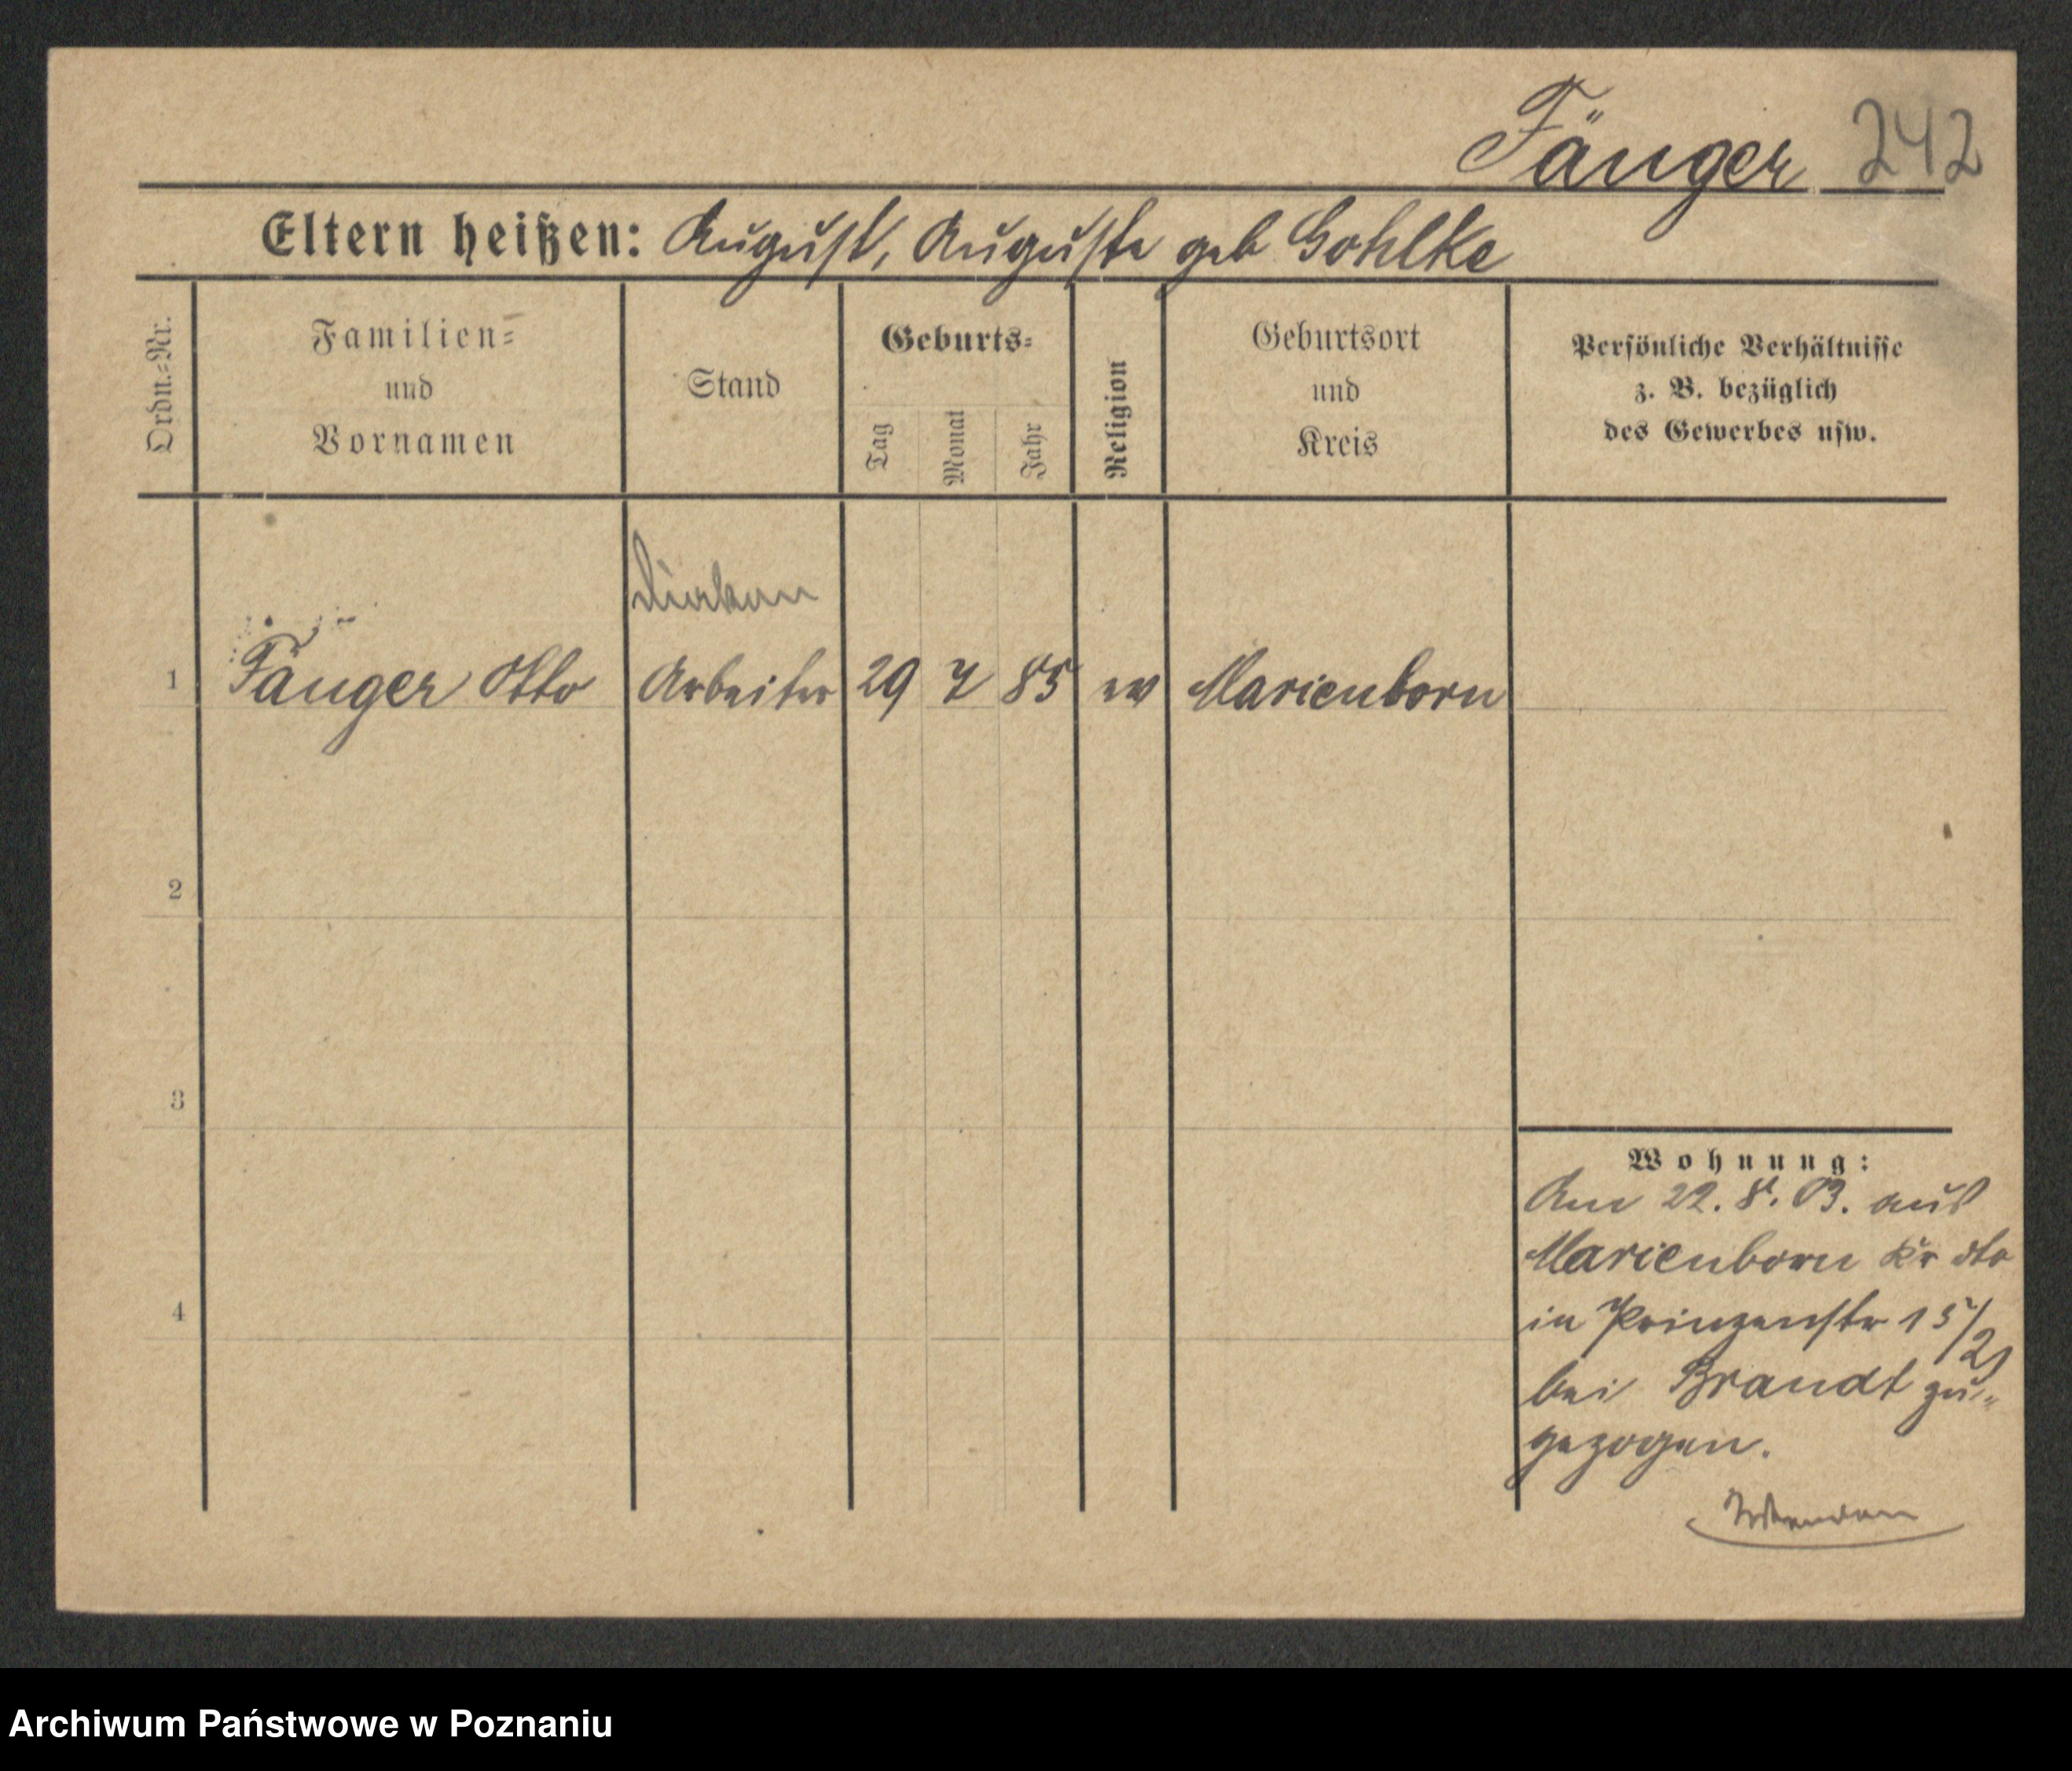 Fänger 242
Eltern heißen: August, Auguste geb Gohlke
Ordn.-Nr.
Familien-
und
Vornamen
Stand
Geburts-
Tag
Monat
Jahr
Religion
Geburtsort
und
Kreis
Persönliche Verhältnisse
z. B. bezüglich
des Gewerbes usw.
1 Fänger Otto Arbeiter 29 7 85 ev Marienborn
2
3
4
Wohnung:
Am 22. 8. 03. aus
Marienborn Kr dto
in Prinzenstr 15/2
bei Brandt zu-
gezogen.
Archiwum Państwowe w Poznaniu